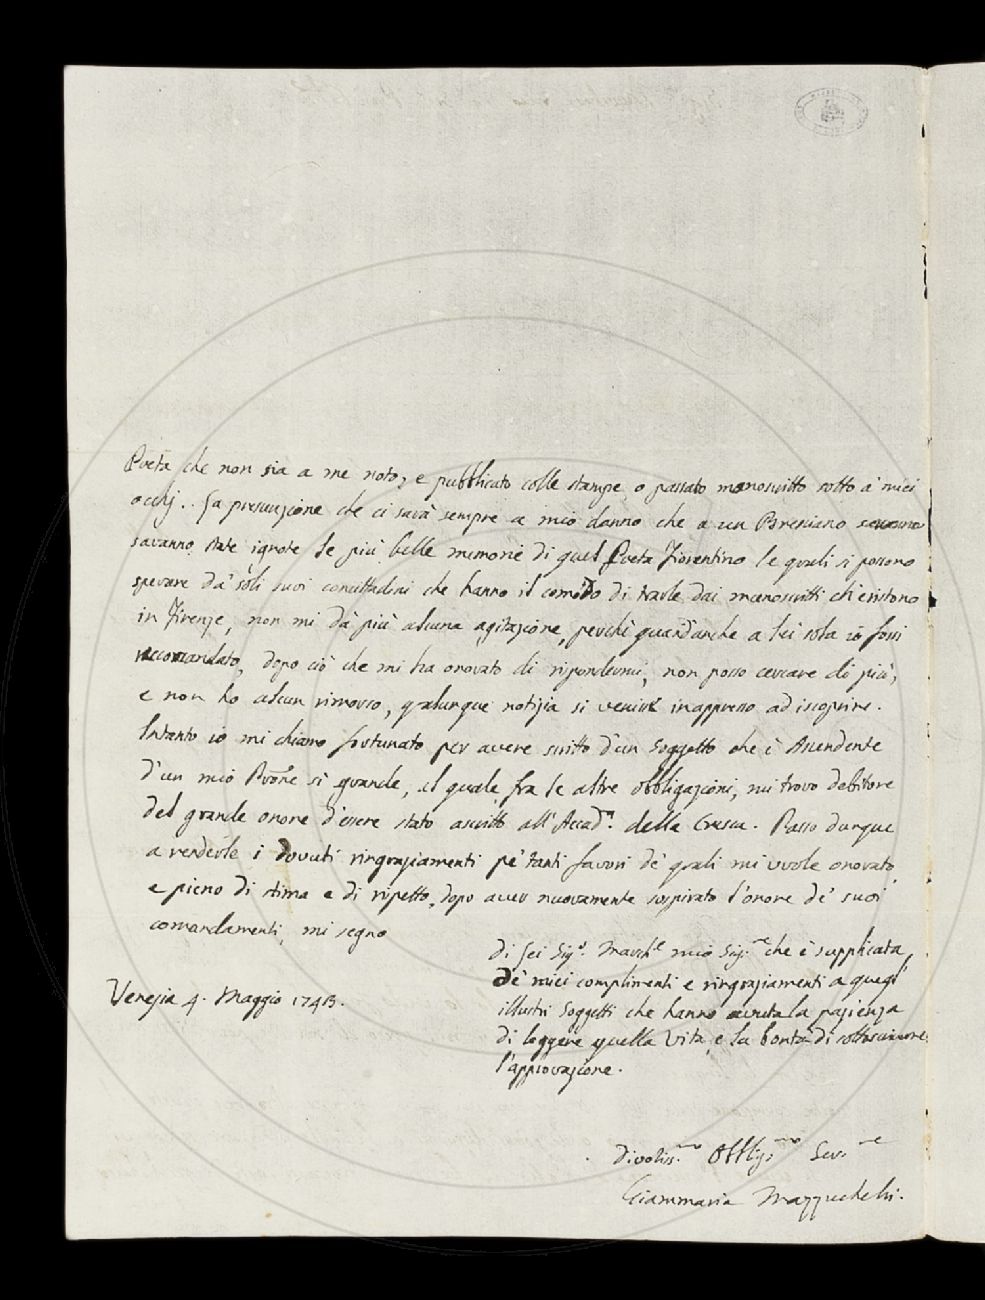 Poeta che non sia a me noto, e pubblicato colle stampe, o passato manoscritto sotto a' miei
occhj. La presunzione che ci sarà sempre a mio danno che a un Bresciano
saranno state ignote le più belle memorie di quel Poeta Fiorentino le quali si possono
sperare da' soli suoi concittadini che hanno il comodo di trarle dai manoscritti ch'esistono
in Firenze, non mi dà più alcuna agitazione, perchè quand'anche a lei sola io fossi
raccomandato, dopo ciò che mi ha onorato di rispondermi, non posso cercare di più,
e non ho alcun rimorso, qualunque notizia si venisse inappresso ad iscoprire.
Intanto io mi chiamo fortunato per avere scritto d'un Soggetto che è Ascendente
d'un mio Prone sì grande, al quale fra le altre obbligazioni, mi trovo debitore
del grande onore d'essere stato ascritto all'Accad.a della Crusca. Passo dunque
a renderle i dovuti ringraziamenti pe' tanti favori de' quali mi vuole onorato,
e pieno di stima e di rispetto, dopo aver nuovamente sospirato l'onore de' suoi
comandamenti, mi segno
Di Lei Sig.r March.e mio Sig.re che è supplicata
de' miei complimenti e ringraziamenti a quegl'
illustri Soggetti che hanno avuta la pazienza
di leggere quella Vita, e la bontà di sottoscriverne
l'approvazione.
Venezia 4. Maggio 1741.
Divotis.mo Obblig.mo Serv.re
Giammaria Mazzuchelli.